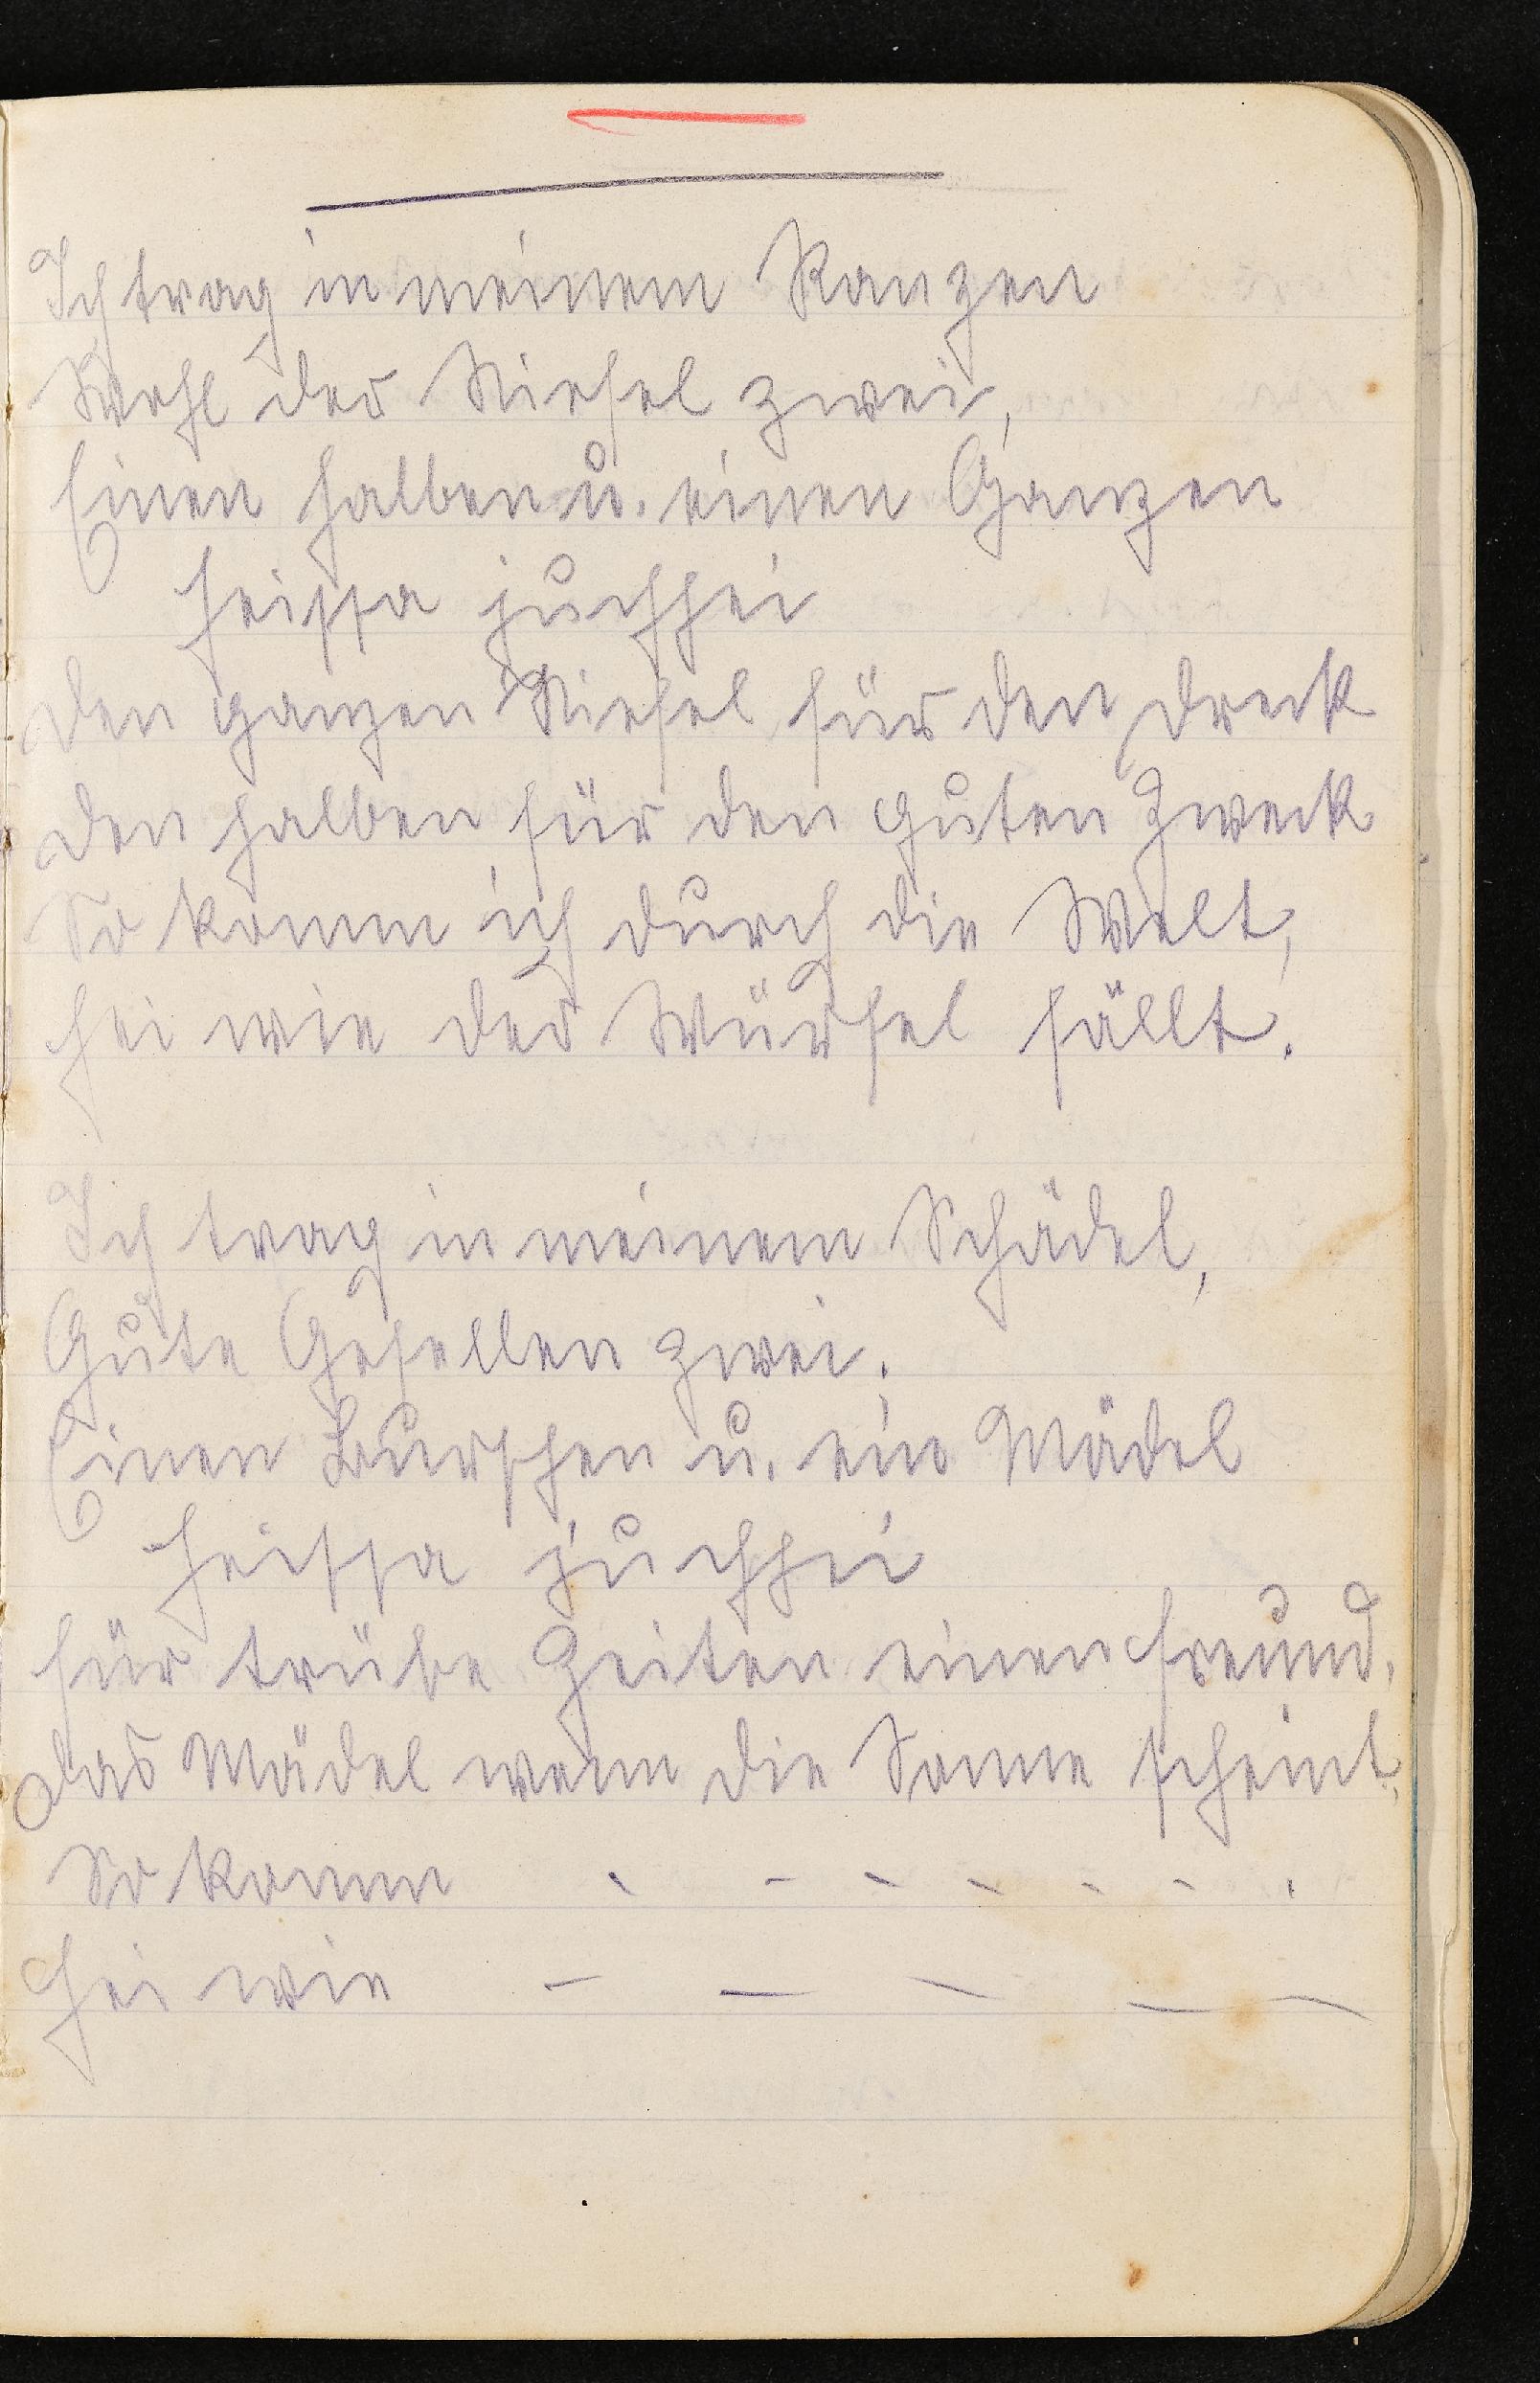 Ich trag in meinem Ranzen
Wohl der Stiefel zwei,
Einen halben u. einen Ganzen
Heissa juchhei
Den ganzen Stiefel für den Dreck
Den halben für den guten Zweck
So komm ich durch die Welt,
Hei wie der Würfel fällt.
Ich trag in meinem Schädel,
Gute Gesellen zwei.
Einen Burschen u. ein Mädel
Heissa juchhei
für trübe Zeiten einen Freund,
Das Mädel wenn die Sonne scheint,
So komm - - - - - - -
Hei wie - - - - -